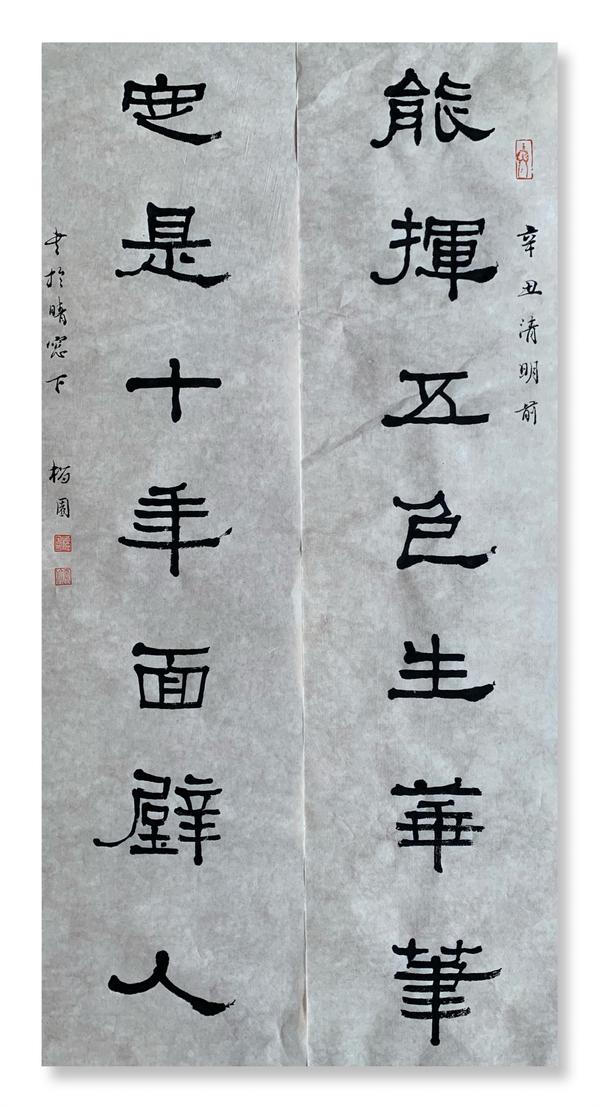 辛丑清明前
能揮五色生華筆
定是十年面壁人
書於晴窓下
園